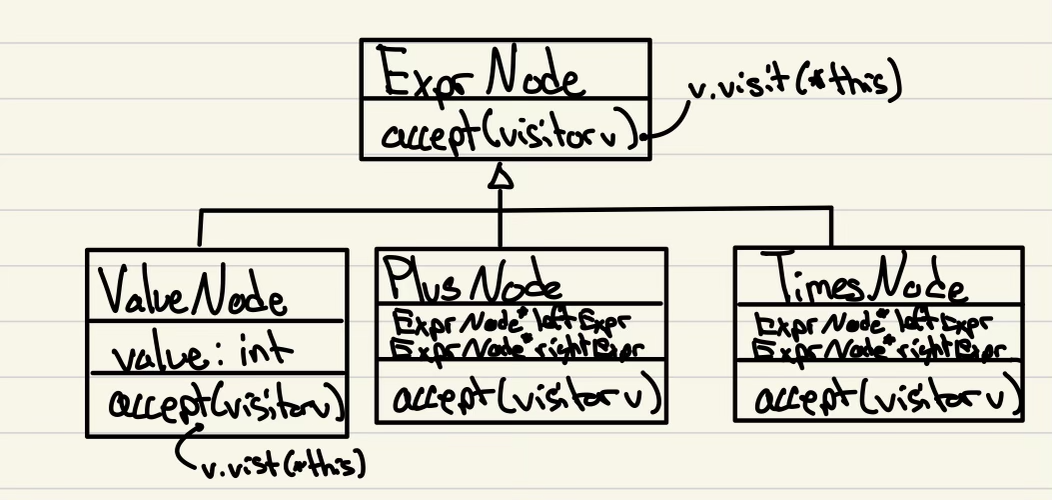 ExprNode
accept(visitor v)
v.visit(*this)
ValueNode
value: int
accept(visitor v)
v.vist(*this)
PlusNode
ExprNode* leftExpr
ExprNode* rightExpr
accept(visitor v)
TimesNode
ExprNode* leftExpr
ExprNode* rightExpr
accept(visitor v)